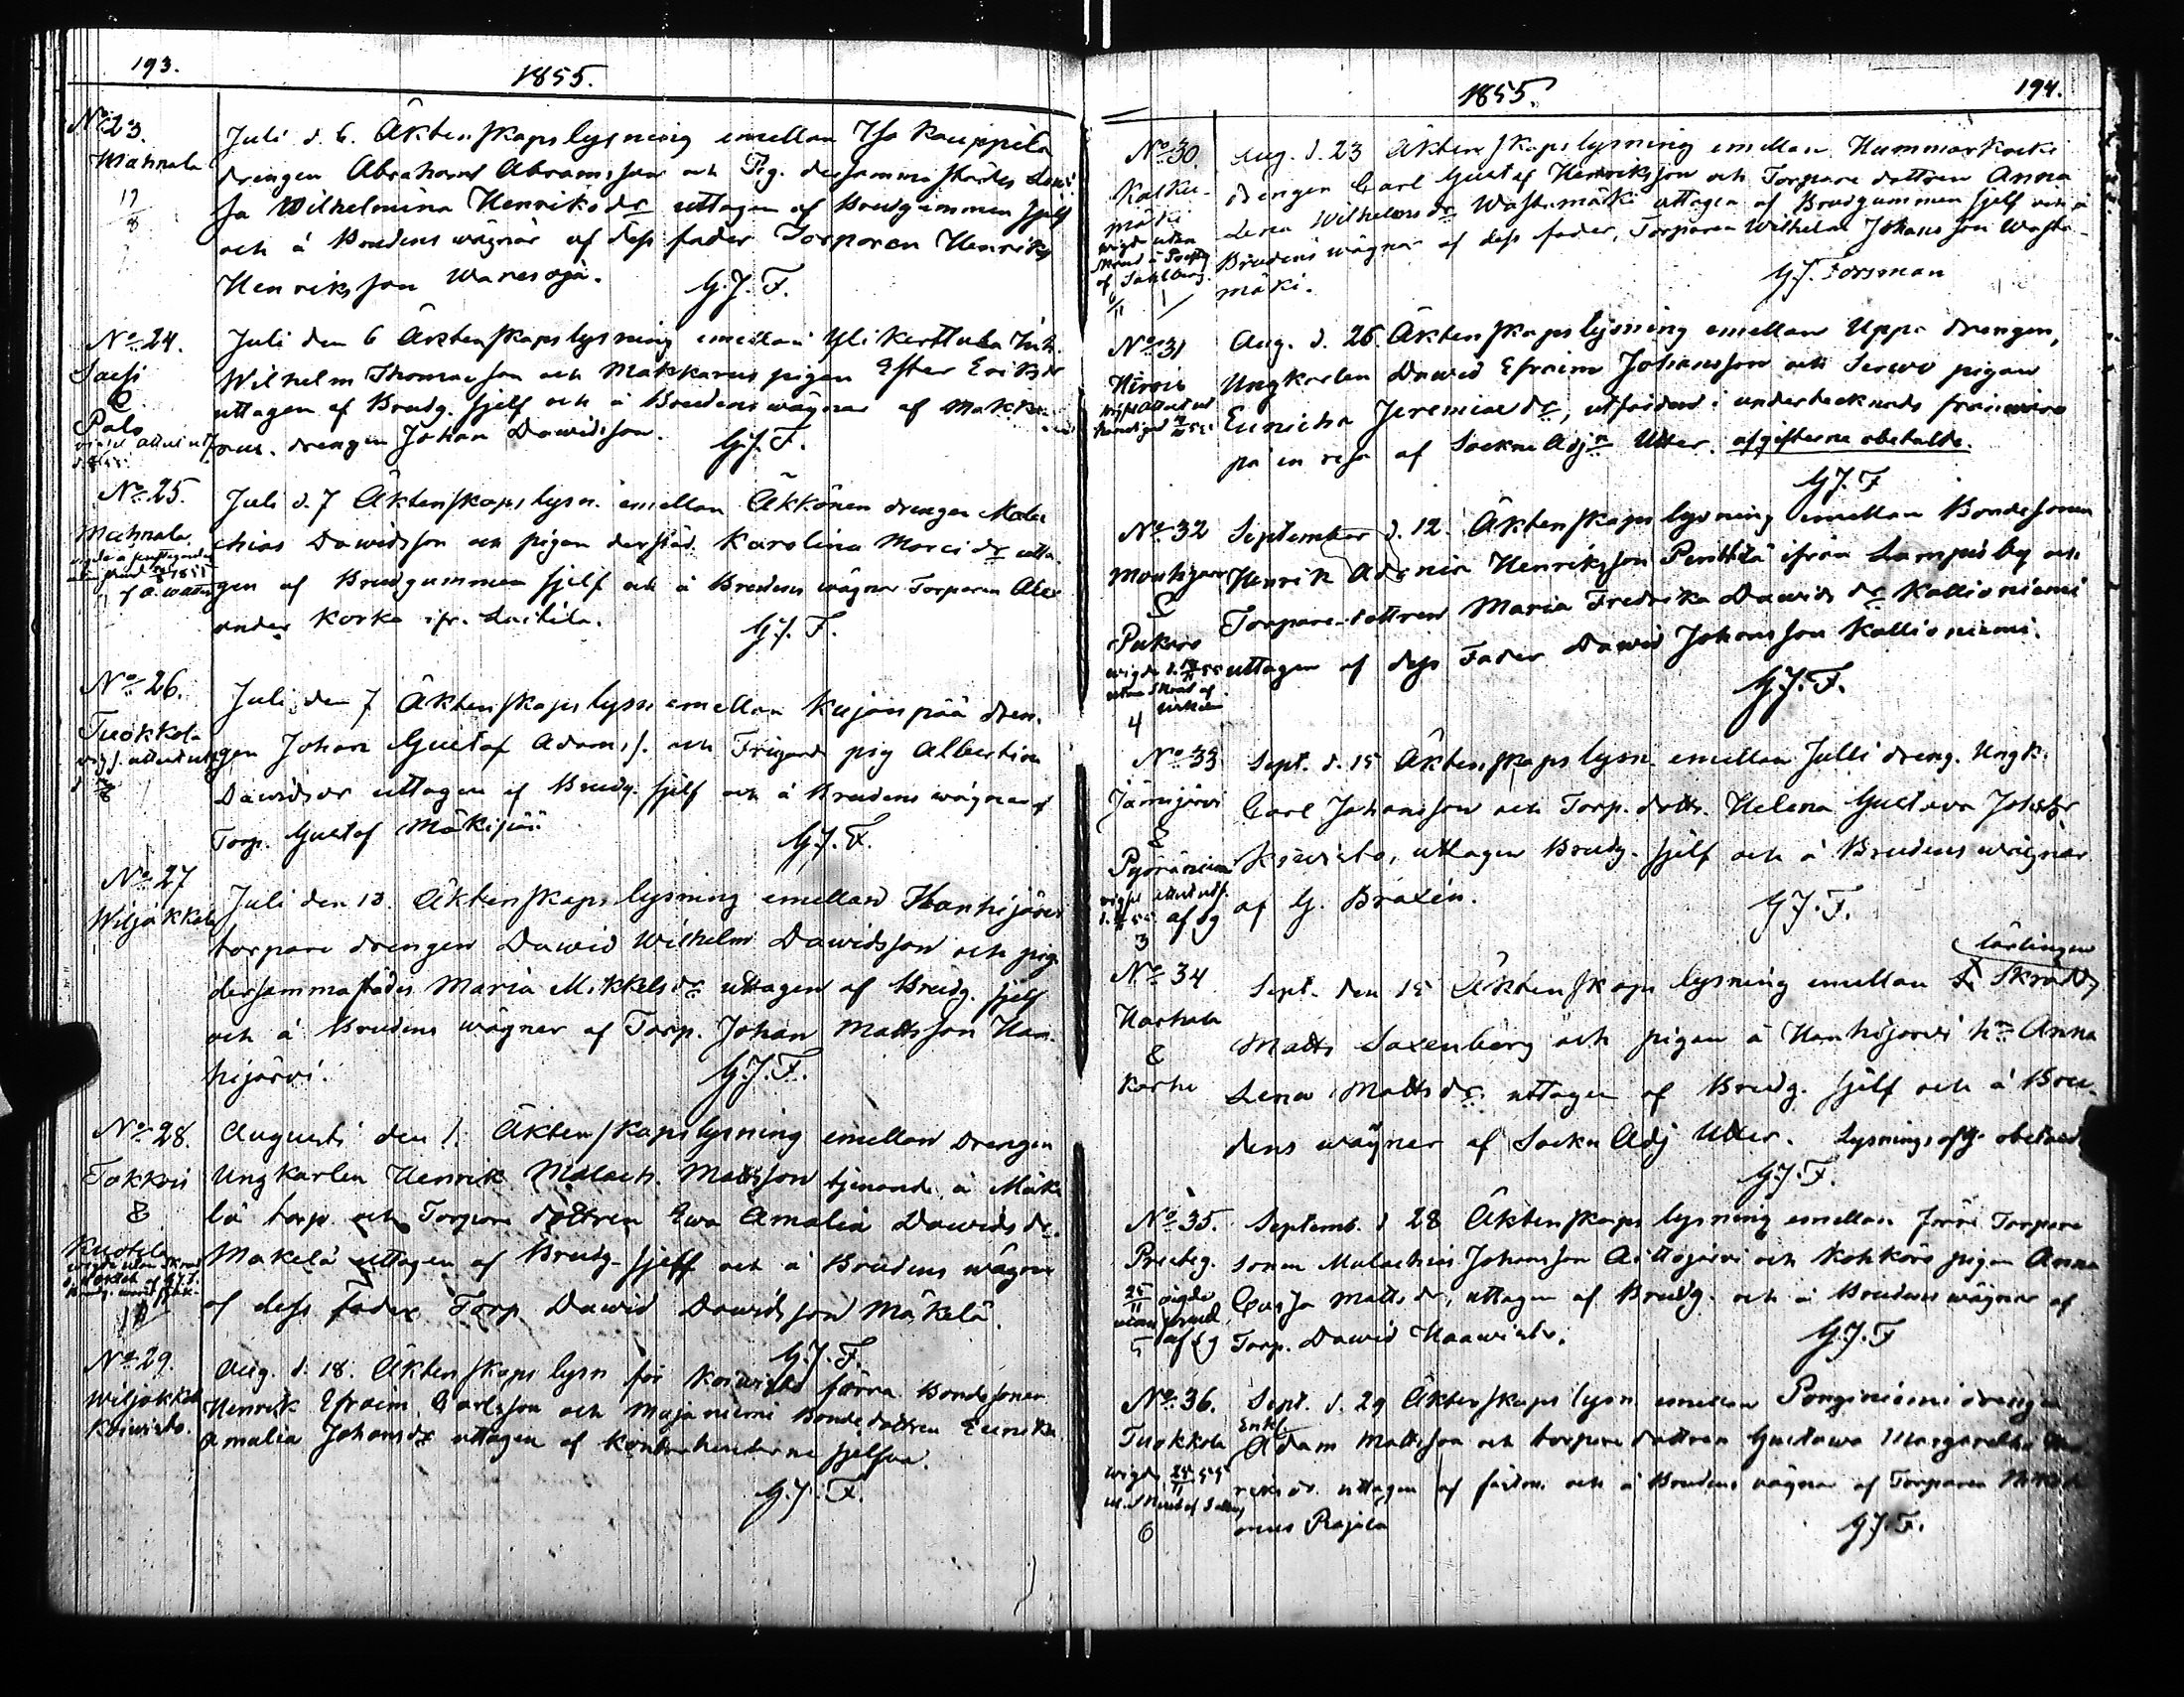 193.
1855.
No 23.
Mahnala
17/8
Juli d. 6. Äktenskapslysning emellan Iso Kauppila
drengen Abraham Abramsson och Pig. dersammastädes Lovi-
sa Wilhelmina Henriksdr uttagen af Brudgummen sjelf
och å Brudens wägnar af dess fader Torparen Henrik
Henriksson Waresoja.
G.J.F.
No 24.
Sassi
&
Palo
Juli den 6 Äktenskapslysning emellan Yli Kerttula Inh.
Wilhelm Thomasson och Makkarus pigan Ester Eriksdr
uttagen af Brudg. sjelf och å Brudens wägnar af Makka-
rus. drengen Johan Dawidsson.
G.J.F.
No 25.
Mahnala.
Juli d. 7 Äktenskapslysn. emellan Äkkönen drengen Mala-
chias Dawidsson och pigan derstäd. Karolina Marci dr utta-
gen af Brudgummen sjelf och å Brudens wägnar Torparen Alex-
ander Korka ifr. Laitila.
G.J.F.
No 26.
Tuokkola
Juli den 7 Äktenskapslysn emellan Kujanpää dren-
gen Johan Gustaf Adams s. och Frigård pig Albertina
Dawidsdr uttagen af Brudg. sjelf och å Brudens wägnar af
Torp. Gustaf Mäkipää.
G.J.F.
No 27
Wiljakkala
Juli den 13. Äktenskapslysning emellan Hanhijärvi
torpare drengen Dawid Wilhelm Dawidsson och pig.
dersammastädes Maria Mikkelsdr uttagen af Brudg. sjelf
och å Brudens wägnar af Torp. Johan Mattsson Han-
hijärvi.
G.J.F.
No 28.
Tokkois
&
Kuotila
Augusti den 1. Äktenskapslysning emellan Drengen
Ungkarlen Henrik Malach. Mattsson tjenande å Mäke-
lä torp och Torpare dottren Ewa Amalia Dawids dr.
Makelä uttagen af Brudg. sjelf och å Brudens wägnar
af dess fader Torp Dawid Dawidsson Mäkelä.
G.J.F.
No 29.
Wiljakkala
Koiwisto.
Aug. d. 18. Äktenskapslysn för Koiwisto förra Bondesonen
Henrik Efraim Carlsson och Majaniemi Bonde dottren Eunika
Amalia Johansdr uttagen af Kontrahenterne sjelfva.
G.J.F.
1855.
194.
No 30.
Kalku-
mäki
wigde utan
Skrud
af Sahlberg.
Aug. d. 23 Äktenskapslysning emellan Hummarkoski
drengen Carl Gustaf Henriksson och Torpare dottren Anna
Lena Wilhelms dr Wastamäki uttagen af Brudgummen sjelf och å
Brudens wägnar af dess fader, Torparen Wilhelm Johansson Wasta-
mäki.
G.J. Forsman
No 31
Hirois
Aug. d. 26. Äktenskapslysning emellan Uppa drengen,
Ungkarlen Dawid Efraim Johansson och Serwo pigan
Eunicha Jeremiae dr, utfärdad i undertecknads frånwaro
på en resa af Sockne Adjn Utter. afgifterne obetalde.
G.J.F
No 32
Mouhijärvi
&
Pukaro
4
September d. 12. Äktenskapslysning emellan Bondesonen
Henrik Adonia Henriksson Penttilä ifrån Lampis by och
Torpare-dottren Maria Fredrika Dawids dr Kallioniemi
uttagen af dess Fader Dawid Johansson Kallioniemi.
G.J.F.
No 33
Jämijärvi
&
af Sg
3
Sept. d. 15 Äktenskapslysn. emellan Julli dreng. Ungk.
Carl Johansson och Torp. dottr. Helena Gustava Johsdr
Koiwisto, uttagen Brudg. sjelf och å Brudens wägnar
af G. Braxén.
G.J.F.
No 34
Harhala
&
Karhe
lärlingen
Sept. den 15 Äktenskapslysning emellan Skrädd
Matts Saxenberg och pigan å Hanhijärvi hn Anna
Lena Mattsdr. uttagen af Brudg. sjelf och å Bru-
dens wägnar af Sockn Adj Utter. Lysningsafg. obetald
G.J.F.
No 35.
Presteg.
25/11 wigde
utan skrud
5 af Sg
Septemb. d 28 Äktenskapslysning emellan förre Torpare
sonen Malachias Johansson Aittojärvi och Kohkörs pigan Anna
Caisa Matts dr, uttagen af Brudg. och å Brudens wägnar af
Torp. Dawid Haawisto.
G.J.F
No 36.
Tuokkola
6
Sept. d. 29 Äktenskapslysn. emellan Ponginiemi drengen
Enkl.
Adam Mattsson och torpare dottren Gustawa Margaretha
dr. uttagen af fästm. och å Brudens wägnar af Torparen
Rajala
G.J.F.